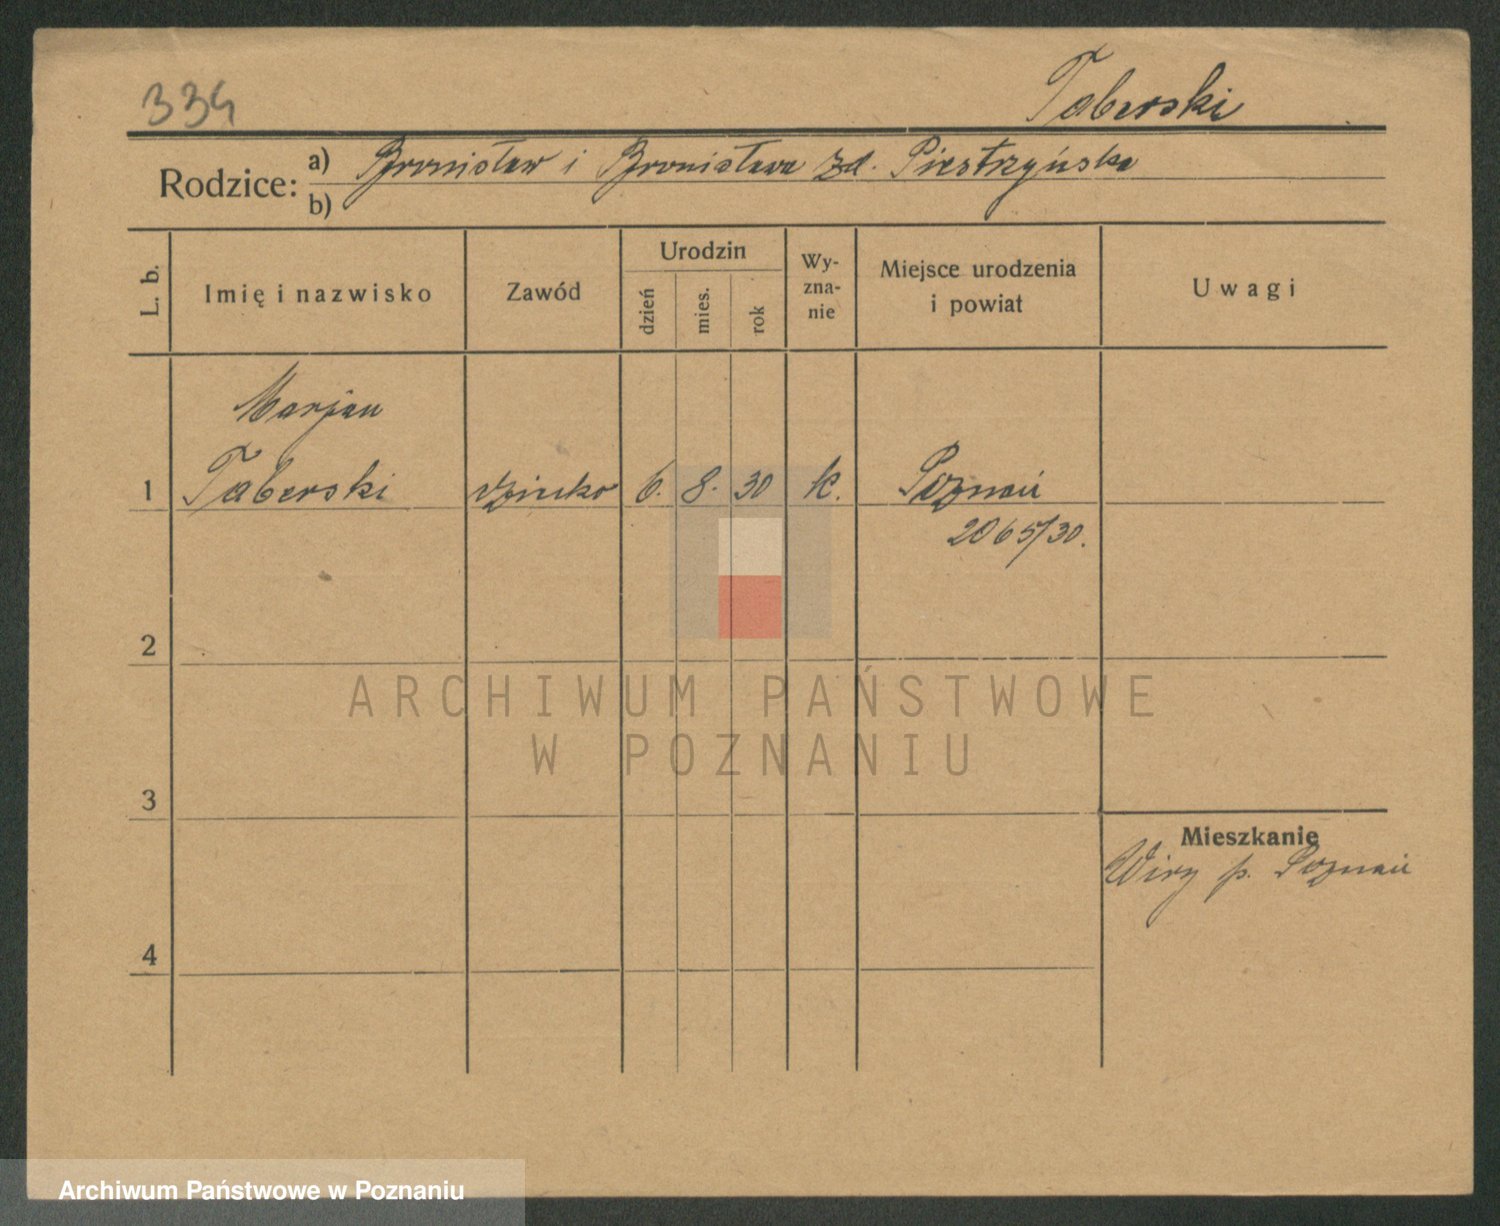 334
Taberski
Rodzice: a) Bronisław i Bronisława zd. Piestrzyńska
b)
L. b. Imię i nazwisko Zawód Urodzin dzień mies. rok Wy-zna-nie Miejsce urodzenia i powiat Uwagi
Marjan
1 Taberski dziecko 6. 8. 30 k. Poznań
2065/30.
2
ARCHIWUM PAŃSTWOWE
W POZNANIU
3
Mieszkanie
Wiry p. Poznań
4
Archiwum Państwowe w Poznaniu